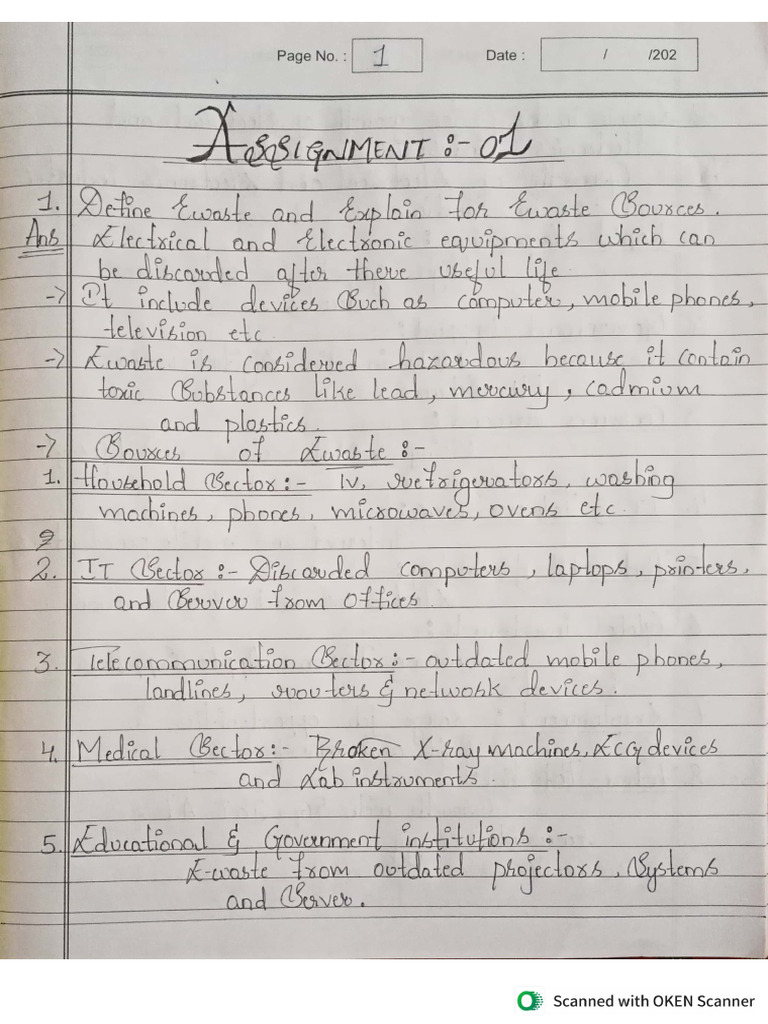 Page No. : 1 Date : / /202
ASSIGNMENT :- 01
1. Define Ewaste and Explain for Ewaste Sources.
Ans Electrical and Electronic equipments which can
be discarded after there useful life
-> It include devices Such as computer, mobile phones,
television etc
-> Ewaste is considered hazardous because it contain
toxic Substances like lead, mercury, cadmium
and plastics.
-> Sources of Ewaste :-
1. Household Sector :- Tv, refrigerators, washing
machines, phones, microwaves, ovens etc.
2. IT Sector :- Discarded computers, laptops, printers,
and Server from offices.
3. Telecommunication Sector :- outdated mobile phones,
landlines, routers & network devices.
4. Medical Sector :- Broken X-ray machines, ECG devices
and Lab instruments.
5. Educational & Government institutions :-
E-waste from outdated projectors, Systems
and Server.
Scanned with OKEN Scanner